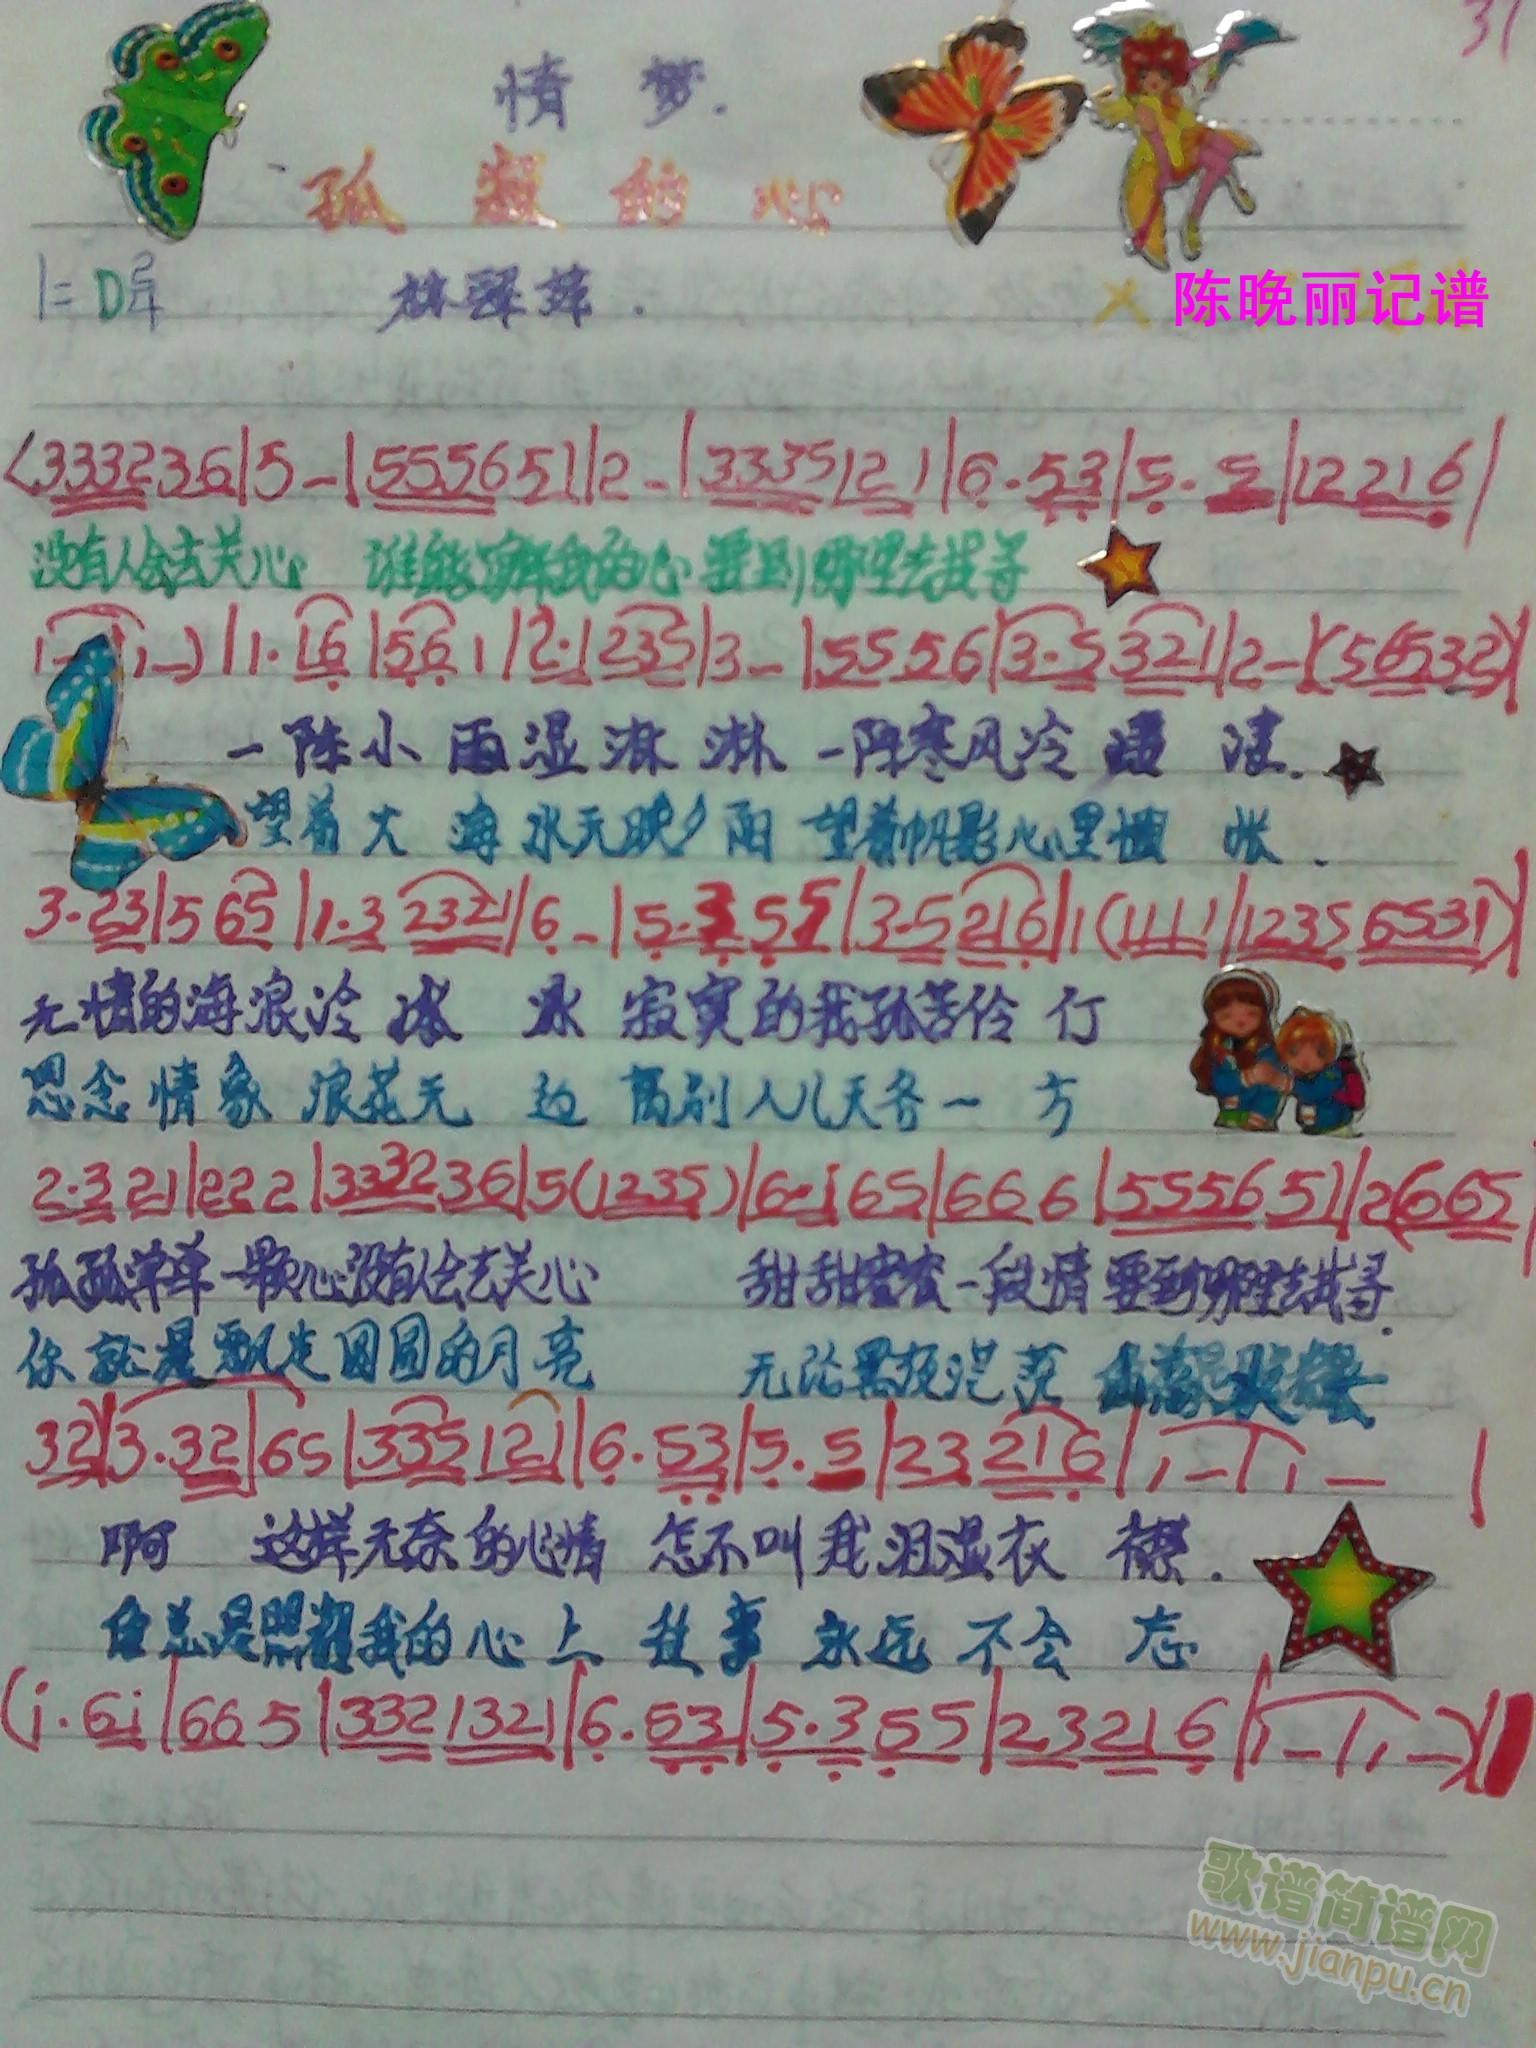 31
情 梦.
孤 凝 的 心
1=D
陈晚丽记谱
(333236|5-|555651|2-|3335121|6.53|5.5|12216|
没有人会去关心 谁能 我的心要到哪里去找寻
1-|1-)|1.16|561|2.1235|3-|5556|3.5321|2-|(56532)|
一陈小雨湿淋淋一陈寒风冷 凄.
望着大海水无 夕阳望着帆影心里惆怅.
3.23|565|1.32321|6-|5.355|3.5216|1(1111|12356531)|
无情的海浪冷冰冰寂寞的我孤苦伶仃
思念情象浪花无边离别人儿天各一方
2.321|222|333236|5(1235)|6.i65|666|555651|2(6665
孤孤单单一颗心没有人会去关心 甜甜蜜蜜一段情要到哪里去找寻.
你就是飘走圆圆的月亮 无论黑夜茫茫
32)|3.32|65|335121|6.53|5.5|23216|1-|1-|
啊 这样无奈的心情 怎不叫我泪湿衣襟.
你总是照耀我的心上 往事永远不会忘
(i.6i|665|3321321|6.53|5.355|23216|1-|1-)|
歌谱简谱网
www.jianpu.cn